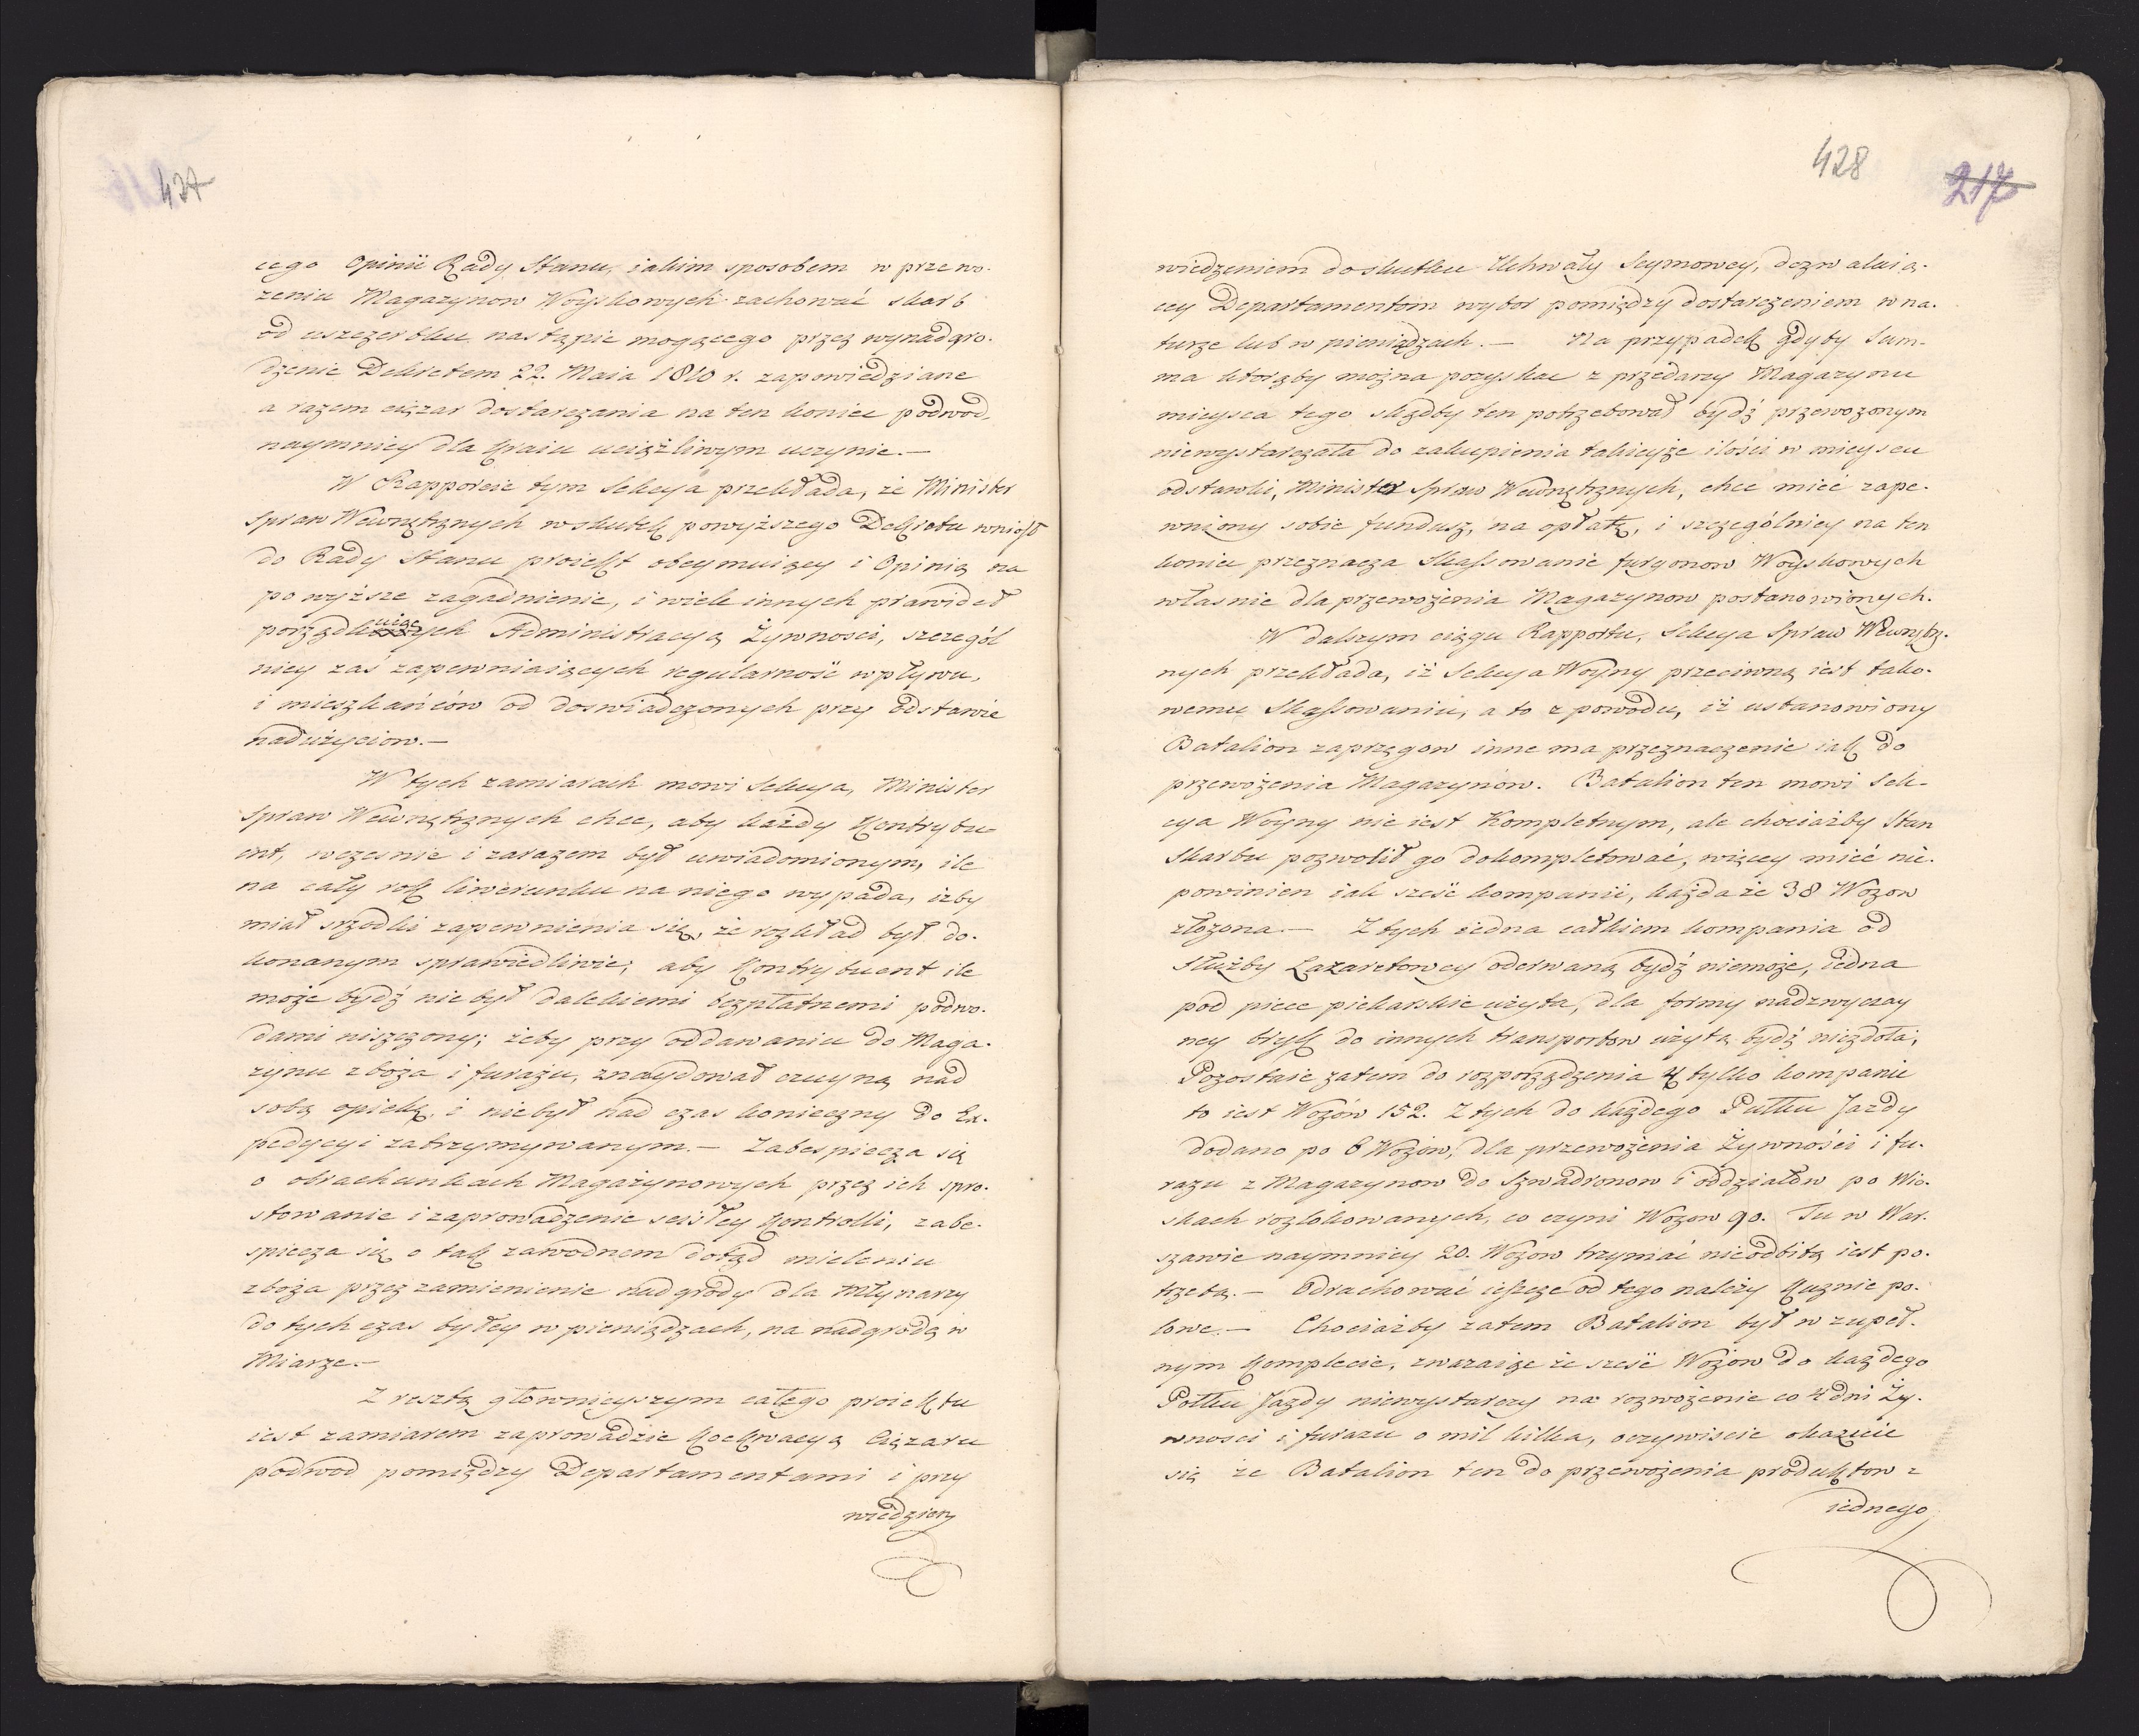 427
cego Opinii Rady Stanu, iakim sposobem w przewo-
zeniu Magazynow Woyskowych zachować skarb
od uszczerbku nastąpic mogącego przez wynadgro-
dzenie Dekretem 22. Maia 1810 r. zapowiedziane
a razem ciężar dostarczania na ten koniec podwod,
naymniey dla Kraiu uciążliwym uczynic.-
W Rapporcie tym Sekcya przekłada, że Minister
Spraw Wewnętrznych wskutek powyższego Dekretu wniosł
do Rady Stanu proiekt obeymuiący i Opinią na
powyższe zagadnienie, i wiele innych prawideł
porządkuiących Administracyą Żywnosci, szczegól
niey zaś zapewniaiących regularność wpływu,
i mieszkańców od doswiadczonych przy odstawie
nadużyciow.-
W tych zamiarach mowi Sekcya, Minister
Spraw Wewnętrznych chce, aby każdy Kontrybu-
ent, wczesnie i zarazem był uwiadomionym, ile
na cały rok liwerunku na niego wypada, iżby
miał srzodki zapewnienia się, że rozkład był do-
konanym sprawiedliwie; aby Kontrybuent ile
może bydź nie był dalekiemi bezpłatnemi podwo-
dami niszczony; żeby przy oddawaniu do Maga-
zynu zboża i furażu, znaydował czuyną nad
sobą opiekę, i niebył nad czas konieczny do Ex-
pedycyi zatrzymywanym.- Zabespiecza się
o obrachunkach Magazynowych przez ich spro-
stowanie i zaprowadzenie scisłey Kontrolli, zabe-
spiecza się o tak zawodnem dotąd mieleniu
zboża przez zamienienie nadgrody dla Młynarzy
do tych czas byłey w pieniądzach, na nadgrodę w
Miarze.-
Z resztą głownieyszym całego proiektu
iest zamiarem zaprowadzic Koekwacyą Ciężaru
podwod pomiędzy Departamentami i przy
wiedzieny
428
217
wiedzeniem do skutku Uchwały Seymowey, dozwalaią-
cey Departamentom wybor pomiędzy dostarczeniem w na-
turze lub w pieniądzach.- Na przypadek gdyby Sum-
ma ktorąby można pozyskac z przedarzy Magazynu
mieysca tego skądby ten potrzebował bydź przewozonym
niewystarczała do zakupienia takieyże ilości w mieyscu
odstawki, Minister Spraw Wewnętrznych, chce miec zape-
wniony sobie fundusz, na opłatę, i szczególniey na ten
koniec przeznacza Skassowanie furgonow Woyskowych
własnie dla przewożenia Magazynow postanowionych.
W dalszym ciągu Rapportu, Sekcya Spraw Wewnętrz-
nych przekłada, iż Sekcya Woyny przeciwną iest tako-
wemu Skassowaniu, a to z powodu, iż ustanowiony
Batalion zaprzęgow inne ma przeznaczenie iak do
przewożenia Magazynów. Batalion ten mowi Sek-
cya Woyny nie iest Kompletnym, ale chociażby Stan
Skarbu pozwolił go dokompletować, więcey mieć nie-
powinien iak sześć kompanii, każda ze 38 Wozow
złozona.- Z tych iedna całkiem kompania od
służby Lazaretowey oderwaną bydź niemoże, iedna
pod piece piekarskie użyta, dla formy nadzwyczay
ney bryk do innych transportow użytą bydź niezdoła;
Pozostaie zatem do rozporządzenia 4 tylko kompanie
to iest Wozów 152. Z tych do każdego Pułku Jazdy
dodano po 6 Wozow, dla przewożenia Żywności i fu-
razu z Magazynow do Szwadronow i oddziałów po Wio-
skach rozlokowanych, co czyni Wozow 90. Tu w War-
szawie naymniey 20. Wozow trzymać nieodbitą iest po-
trzebą.- Odrachować ieszcze od tego należy Kuznie po-
lowe.- Chociażby zatem Batalion był w zupeł-
nym Komplecie, zwazaiąc że sześć Wozow do każdego
Półku Jazdy niewystarczy na rozwożenie co 4 dni Ży-
wnosci i furazu o mil kilka, oczywiscie okazuie
się ze Batalion ten do przewożenia produktow z
iednego